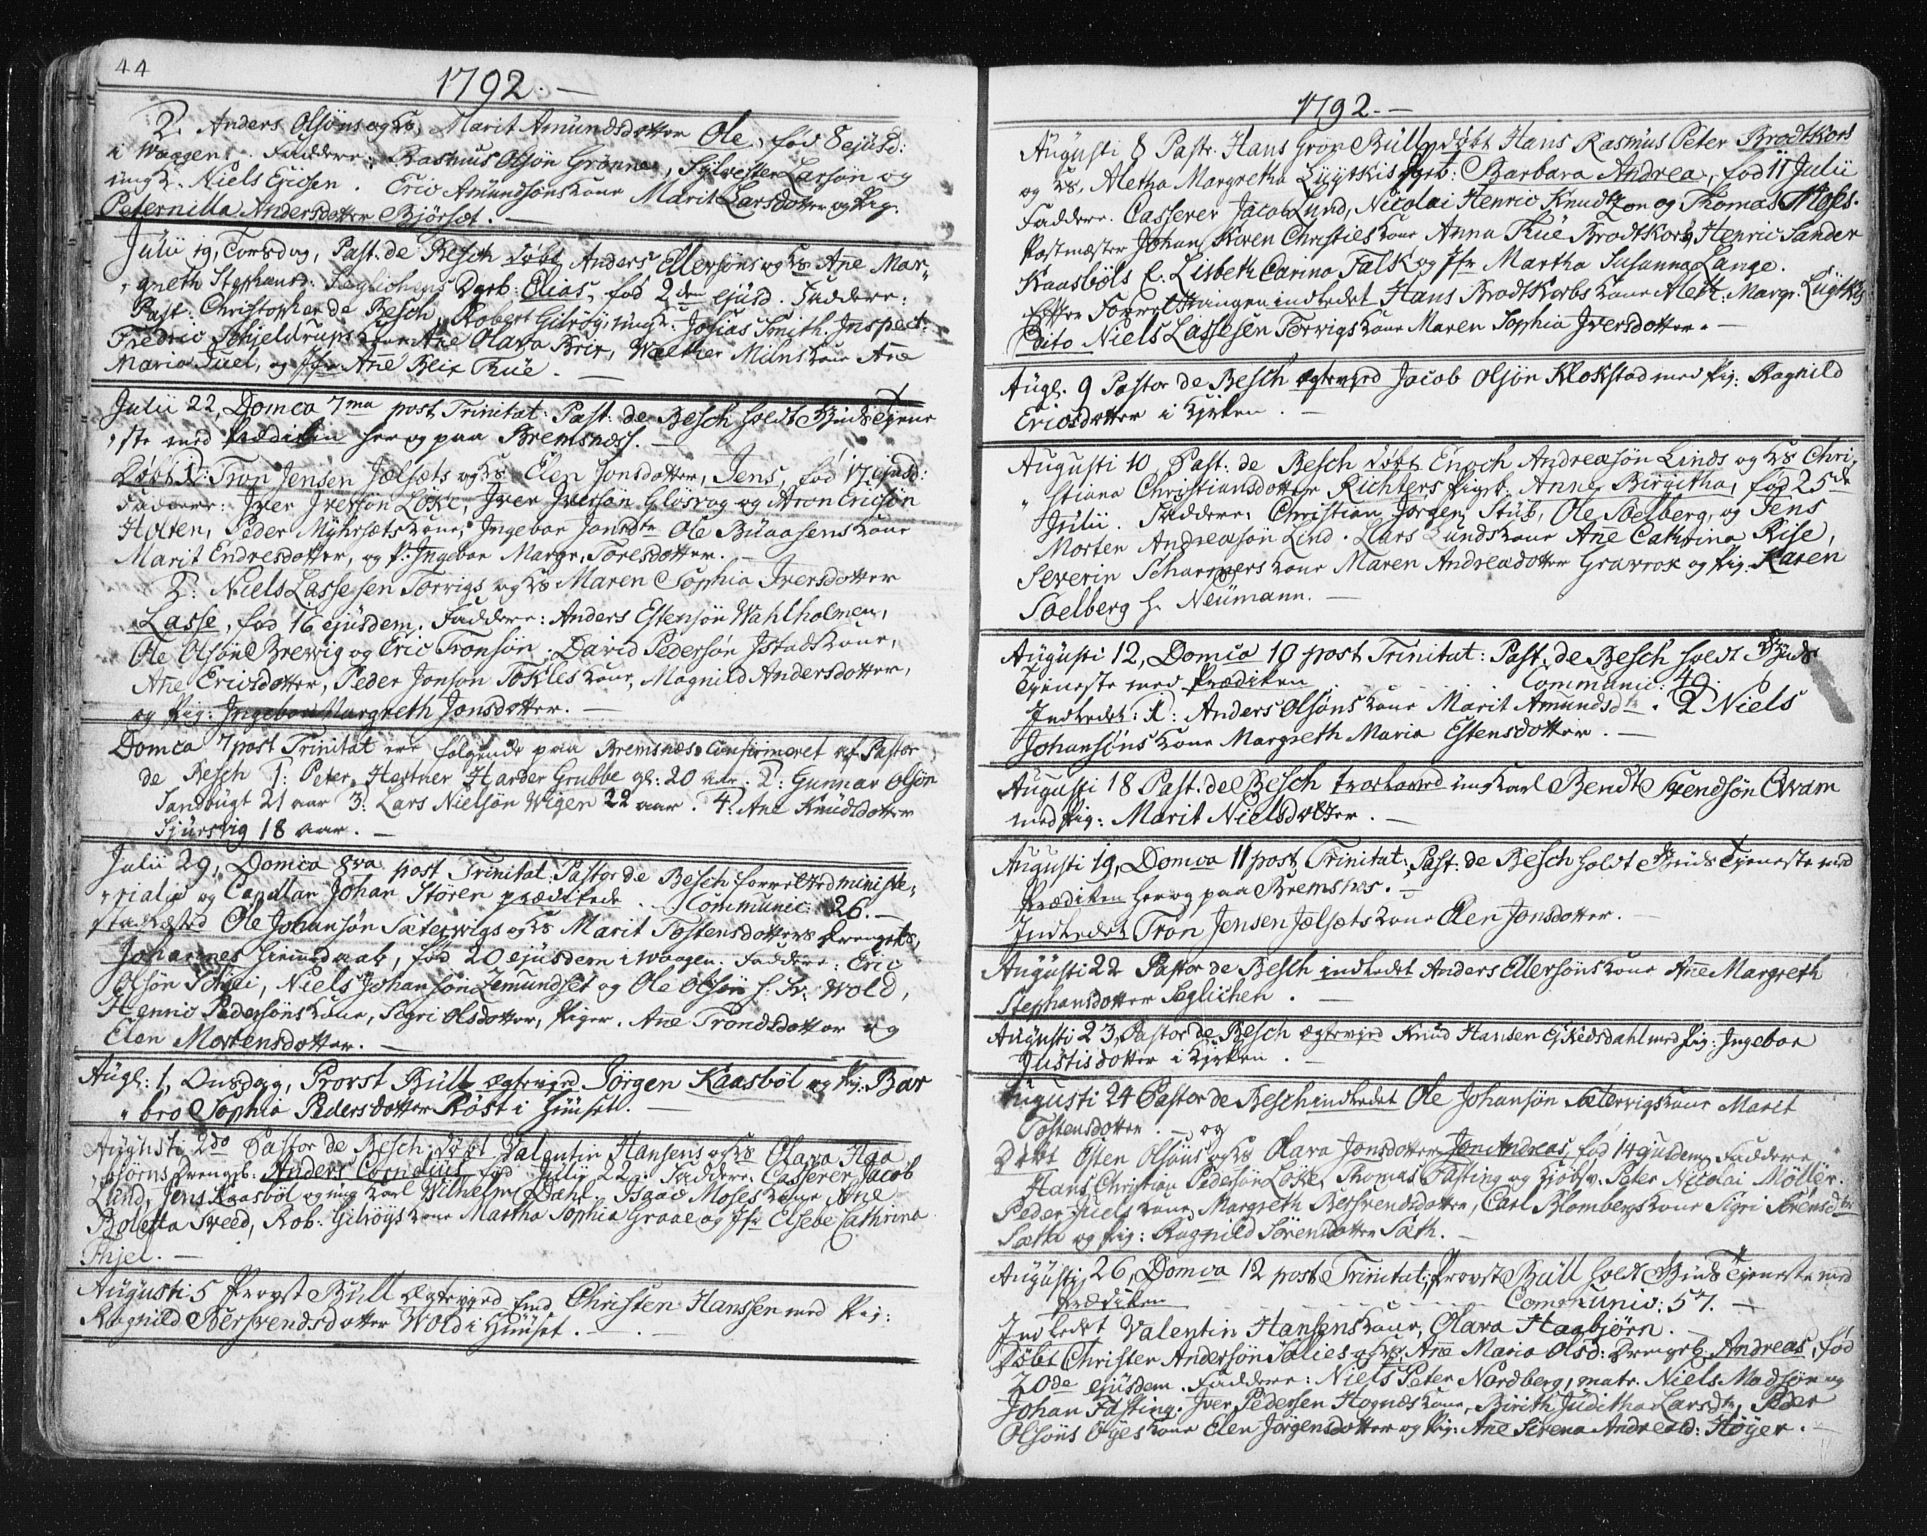 44
1792. —
2. Anders Olsöns og Ks. Marit Amundsdotter Ole, fød 8 ejusd:
i Waagen. Faddere: Rasmus Olsön Grönnes, Sylvester Larsön og
ungk. Niels Ericsen. Eric Amundsöns kone Marit Larsdotter og Pig:
Peternilla Andersdotter Björset. —
Julii 19, Torsdag, Past. de Besch døbt Anders Ellersöns og Ks Aῆe Mar
„greth Stephansd: Seglichens Dgb: Elias, fød 2den ejusd. Faddere:
Past: Christopher de Besch, Robert Gilroy, ungk. Josias Smith. Inspect:
Fredric Schjeldrups kone Aῆe Olava Brix, Walther Milns kone Aῆe
Maria Juel, og Jfr Aῆe Beix Thüe. —
Julii 22, Domca 7ma post Trinitat: Past: de Besch holdt Gudstjene
„ste med Prædiken her og paa Bremsnæs. —
Døbt 1: Tron Jensen Jælsæts og Ks Elen Jonsdotter, Jens, fød 17 ejusd:
Faddere: Iver Iversön Löke, Iver Iversön Gløsvog og Aron Ericsön
Holten, Peder Myhrsæts kone, Ingebor Jonsdtr Ole Buaasens kone
Marit Endresdotter, og P: Ingebor Margr. Toresdotter. —
2: Niels Lassesen Torvigs og Ks Maren Sophia Iversdotter
Lasse, fød 16 ejusdem. Faddere: Anders Estensön Wahlholmen,
Ole Olsön Brevig og Eric Tronsön. David Pedersön Istads kone,
Aῆe Ericsdotter, Peder Jonson Tokles kone, Magnild Andersdotter,
og Pig: Ingebor Margreth Jonsdotter. —
Domca 7 post Trinitat ere følgende paa Bremsnæs confirmeret af Pastor
de Besch 1: Peter Hestner Harder Grubbe gl: 20 aar. 2: Gunnar Olsön
Sandbugt 21 aar 3: Lars Nielsön Wigen 22 aar. 4: Ane Knudsdotter
Sjursvig 18 aar. —
Julii 29, Domca 8va post Trinitat: Pastor de Besch forretted ministe„
„rialia og Capellan Johan Stören prædikede. — Communic: 26. —
stadfæsted Ole Johansön Sætervigs og Ks Marit Tostensdotters Drengeb.
Johannes hiemedaab, fød 20 ejusdem i Waagen. Faddere: Eric
Olsön Schei, Niels Johansön Zemundset og Ole Olsön h. Fr: Wold,
Henric Pedersöns kone, Sigri Olsdotter, Piger. Aῆe Trondsdotter og
Elen Mortensdotter. —
Augl: 1, Onsdag, Provst Büll ægteviede Jörgen Kaasböl og Pig: Bar
„bro Sophia Pedersdotter Röst i Huuset. —
Augusti 2do Pastor de Besch døbt Valentin Hansens og Ks Olava Haa
„björns Drengeb. Anders Cornelius, fød Julii 22. Faddere: Casserer Jacob
Lund, Jens Kaasböl og ung karl Wilhelm Dahl. Isaac Moses kone Aῆe
Bolletta Sveed, Rob: Gilroys kone Martha Sophia Graae og Jfr Elsebe Cathrina
Thjel. —
Augusti 5 Provst Büll ægteviede Emd Christen Hanssen med Pig:
Ragnild Bersvendsdotter Wold i Huuset. —
1792. —
Augusti 8 Past. Hans Gron Büll døbt Hans Rasmus Peter Brodtkorb
og Ks. Aletha Margretha Lüytkis Pigeb: Barbara Andrea, fød 11 Julii
Faddere. Casserer Jacob Lund, Nicolai Henric Knudtzon og Thomas Moses.
Postmæster Johan Koren Christies kone Anna Thüe Brodtkorb, Henric Sander
Kaasböls E. Lisbeth Carina Falk og Jfr Martha Susanna Lange.
Efter Forretningen indledet Hans Brodtkorbs kone Aleth. Margr. Lüytkis
Dito Niels Lassesen Torvigs kone Maren Sophia Iversdotter. —
Augl. 9 Pastor de Besch ægteviede Jacob Olsön Klokstad med Pig: Ragnild
Ericsdotter i Kirken. —
Augusti 10 Past: de Besch døbt Enoch Andreasön Linds og Ks Chri
„stiana Christiansdotter Richters Pigeb. Anne Birgitha, fød 25de
Julii. Faddere: Christian Jörgen Stub, Ole Soelberg, og Jens
Morten Andreasön Lind. Lars Lunds kone Aῆe Cathrina Riise,
Severin Scharpners kone Maren Andreædotter Gravrok og Pig: Karen
Soelberg h. Neumann. —
Augusti 12, Domca 10 post Trinitat: Past. de Besch holdt Guds
Tjeneste med Prædiken Communic: 49.
Indledet: 1: Anders Olsöns kone Marit Amundsdtr. 2 Niels
Johansöns kone Margreth Maria Estensdotter. —
Augusti 18 Past. de Besch trolovede ungkarl Bendt Svendsön Qvam
med Pig: Marit Nielsdotter. —
Augusti 19, Domca 11 post Trinitat: Past: de Besch holdt Guds Tjeneste med
Prædiken her og paa Bremsnæs. —
Indledet Tron Jensen Jælsæts kone Elen Jonsdotter. —
Augusti 22 Pastor de Besch indledet Anders Ellersöns kone Aῆe Margreth
Stephansdotter Seglichen. —
Augusti 23, Pastor de Besch ægteviede Knud Hansen Eskedsdahl med Pig: Ingebor
Justisdotter i Kirken. —
Augusti 24 Pastor de Besch indledet Ole Johansön Sætervigs kone Marit
Tostensdotter. — og
Døbt Osten Olsöns og Ks Olava Jonsdotter Jon Andreas, fød 14 ejusdem. Faddere:
Hans Christian Pedersön Löke, Thomas Fasting og Kjøbsv. Peter Nicolai Möller.
Peder Juels kone Margreth Bersvendsdotter, Carl Blombergs kone Sigri Sörensdtr
Sæth og Pig: Ragnild Sörensdotter Sæth. —
Augusti 26, Domca 12 post Trinitat: Provst Büll holdt Guds Tjeneste med
Prædiken — — — Communic: 57. —
Indledet Valentin Hansens kone, Olava Haabjörn. —
Døbt Christen Andersön Dalies og Ks Aῆe Maria Olsd: Drengeb. Andreas, fød
20de ejusdem. Faddere: Niels Peter Nordberg, matr. Niels Madsön og
Johan Fasting. Iver Pedersen Hognæs kone, Birith Juditha Larsdtr, Peder
Olsöns Öyes kone Elen Jörgensdotter og Pig: Aῆe Serena Andreæd: Höyer. —